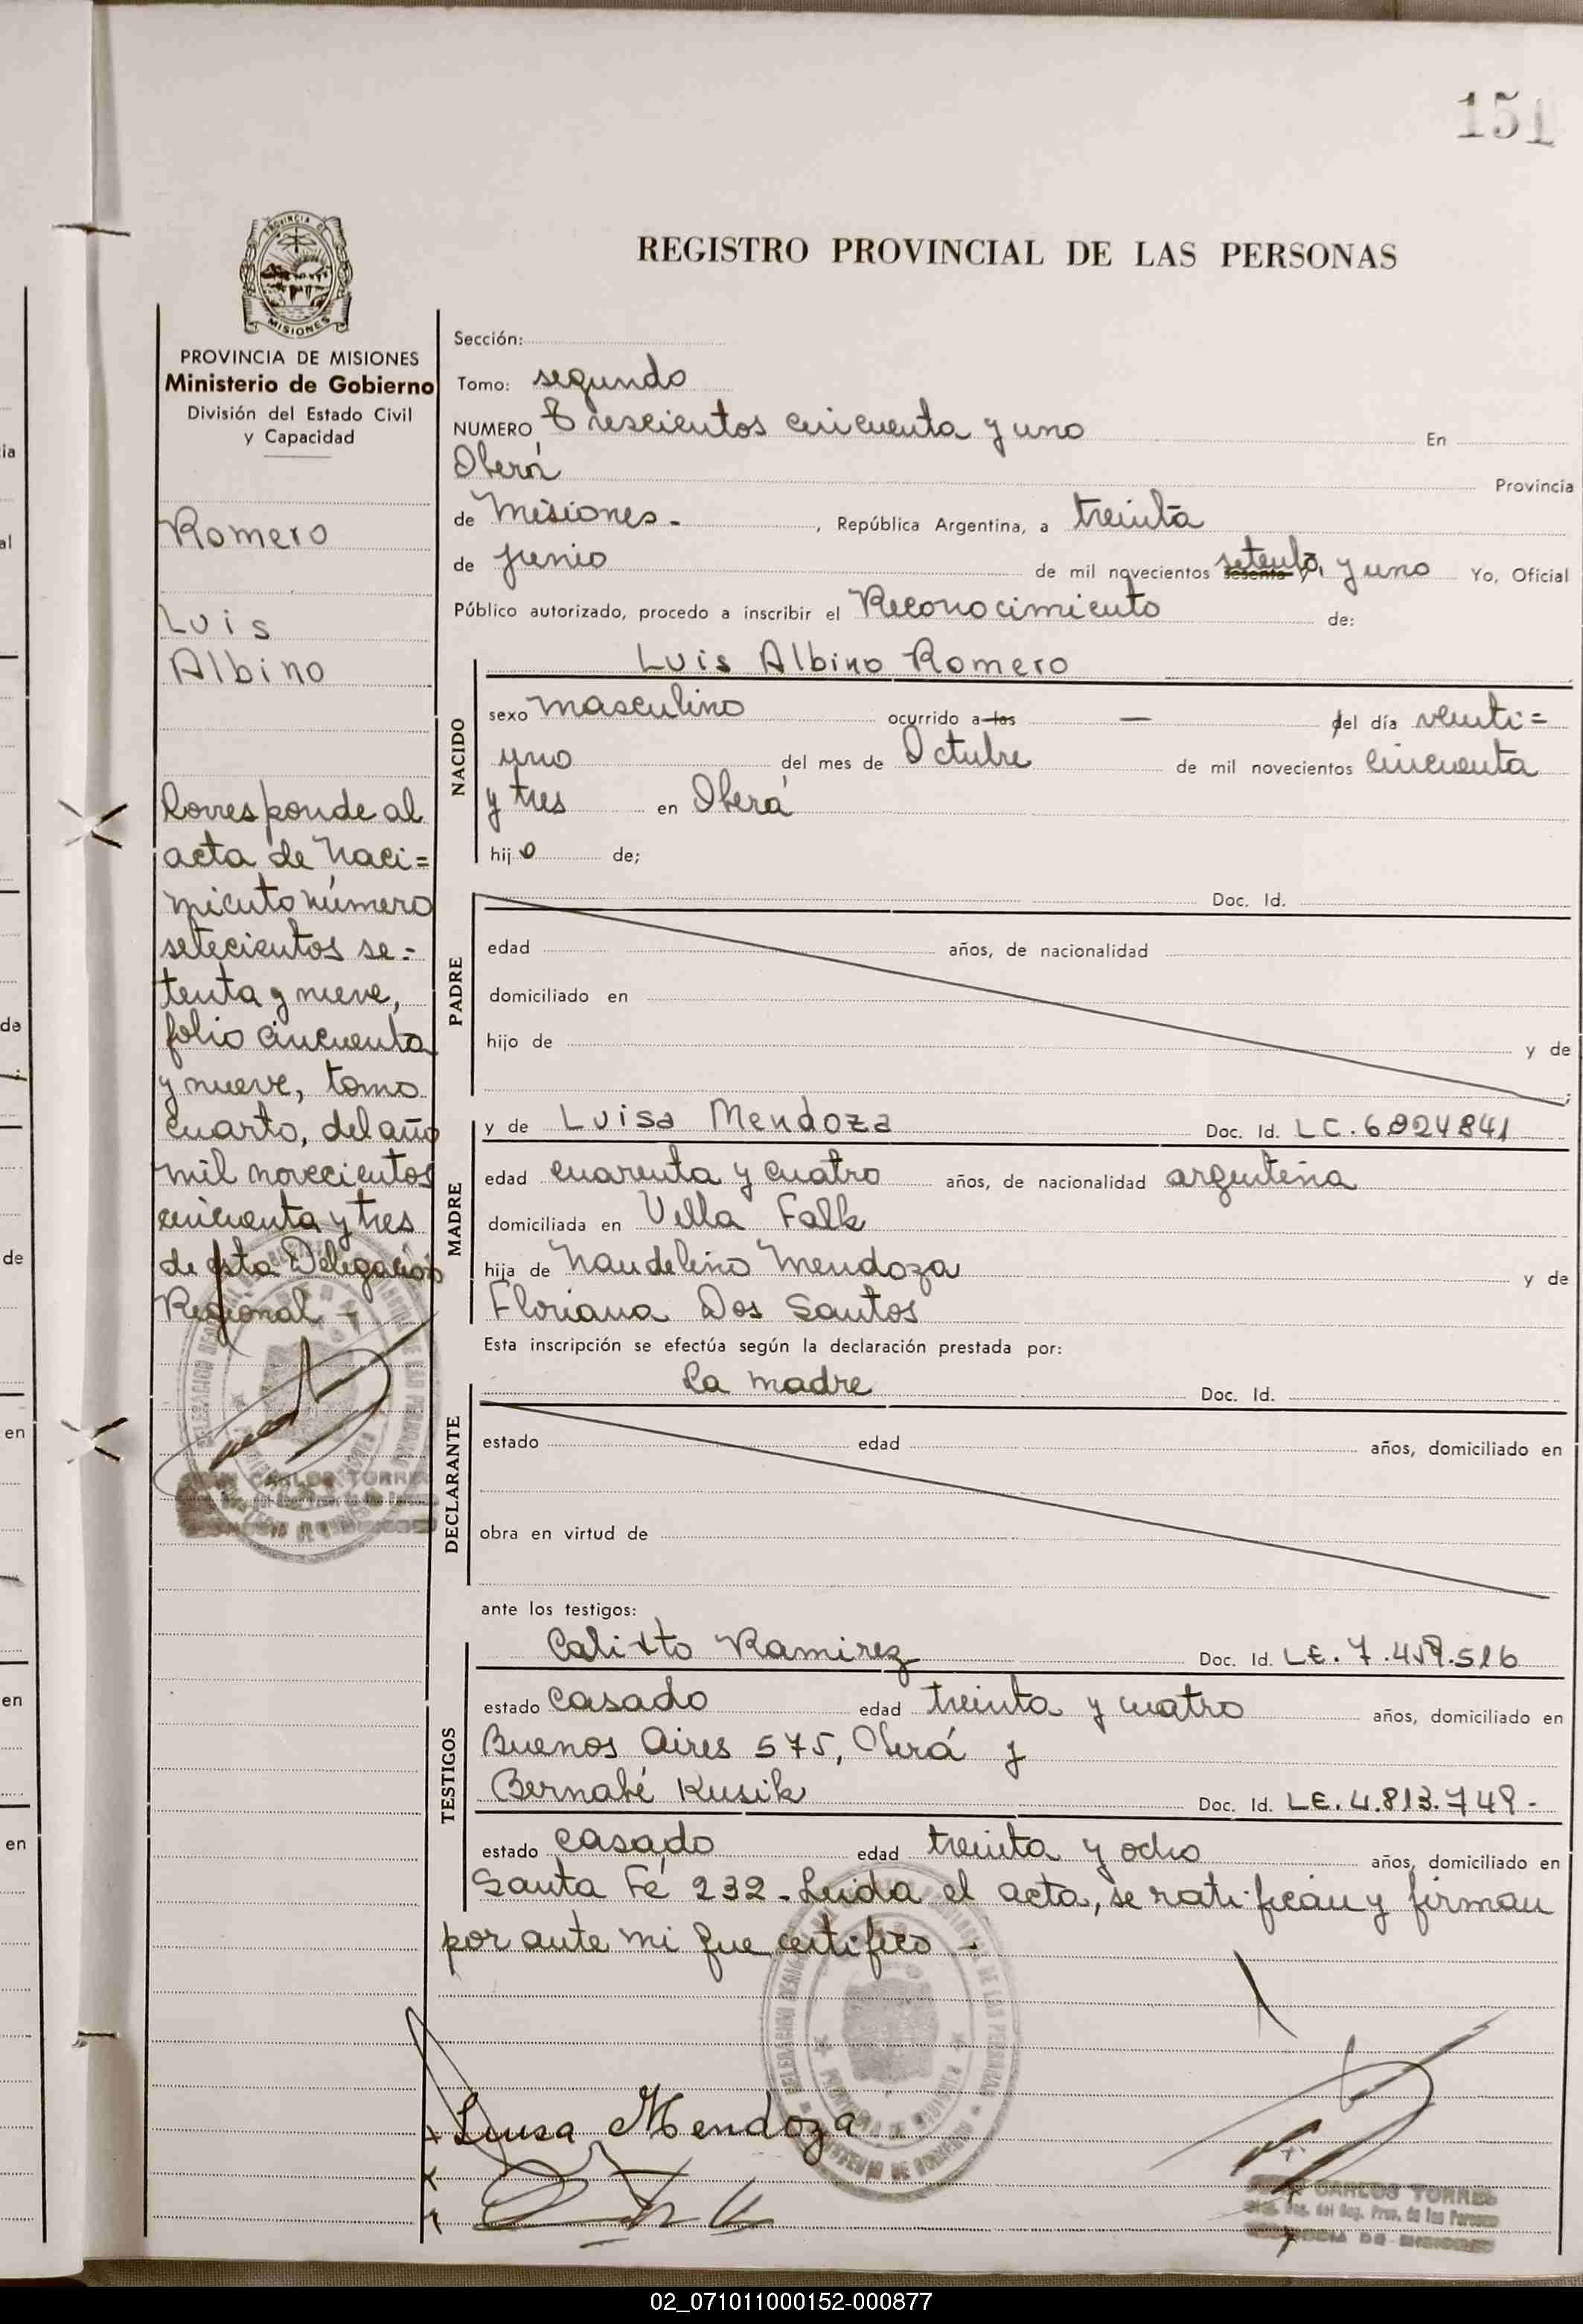 151
PROVINCIA
MISIONES
REGISTRO PROVINCIAL DE LAS PERSONAS
PROVINCIA DE MISIONES
Ministerio de Gobierno
División del Estado Civil
y Capacidad
Romero
Luis
Albino
Corresponde al
acta de Naci=
miento número
setecientos se=
tenta y nueve,
folio cincuenta
y nueve, tomo
cuarto, del año
mil novecientos
cincuenta y tres
de esta Delegación
Regional -
CARLOS TORRES
Sección:
Tomo: segundo
NUMERO Trescientos cincuenta y uno En
Oberá Provincia
de Misiones - , República Argentina, a treinta
de junio de mil novecientos sesenta y setenta, y uno Yo, Oficial
Público autorizado, procedo a inscribir el Reconocimiento de:
NACIDO
Luis Albino Romero
sexo masculino ocurrido a las — del día veinti=
uno del mes de Octubre de mil novecientos cincuenta
y tres en Oberá
hijo de;
PADRE
Doc. Id.
edad años, de nacionalidad
domiciliado en
hijo de y de
;
MADRE
y de Luisa Mendoza Doc. Id. LC. 6.824841
edad cuarenta y cuatro años, de nacionalidad argentina
domiciliada en Villa Falk
hija de Naudelino Mendoza y de
Floriana Dos Santos
Esta inscripción se efectúa según la declaración prestada por:
DECLARANTE
La madre Doc. Id.
estado edad años, domiciliado en
obra en virtud de
ante los testigos:
TESTIGOS
Calixto Ramirez Doc. Id. LE. 7.459.516
estado casado edad treinta y cuatro años, domiciliado en
Buenos Aires 575, Oberá y
Bernabé Kusik Doc. Id. LE. 4.813.749 -
estado casado edad treinta y ocho años, domiciliado en
Santa Fé 232 - Leida el acta, se ratifican y firman
por ante mi que certifico -
Luisa Mendoza
CARLOS TORRES
del Reg. Prov. de las Personas
02_071011000152-000877